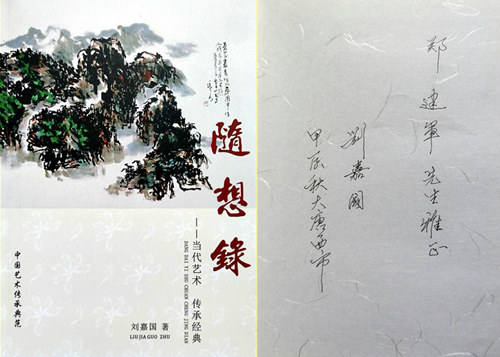 隨想錄
——当代艺术 传承经典
DANG DAI YI SHU CHUAN CHENG JING DIAN
中国艺术传承典范
刘嘉国 著
LIU JIA GUO ZHU
郑建军先生雅正
劉嘉國
甲辰秋大唐西市